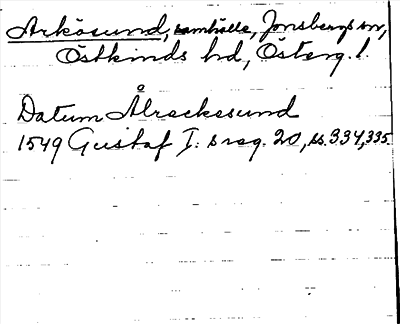 Arkösund, samhälle, Jonsbergs sn,
Östkinds hd, Österg. l.
Datum Ålreckesund
1549 Gustaf I: s reg. 20, ss. 334, 335.